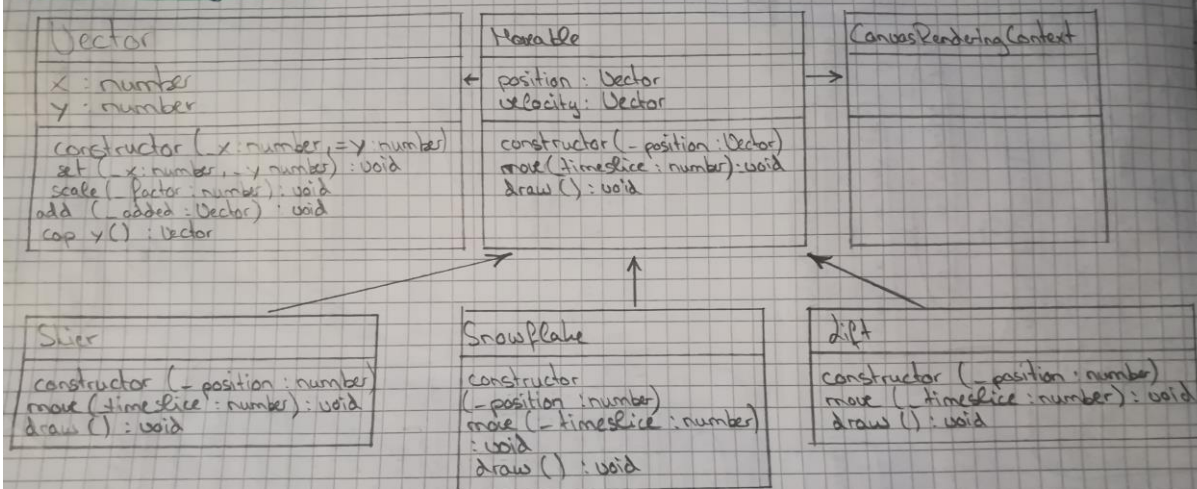 Vector
x : number
y : number
constructor (_x: number, =y: number)
set (_x: number, _y number) : void
scale (_factor : number) : void
add (_added : Vector) : void
cop y() : Vector
Moveable
position : Vector
velocity : Vector
constructor (_position : Vector)
move (timeslice : number) : void
draw () : void
CanvasRenderingContext
Skier
constructor (_position : number)
move (timeslice : number) : void
draw () : void
Snowflake
constructor
(_position : number)
move (_timeslice : number)
: void
draw () : void
Lift
constructor (_position : number)
move (_timeslice : number) : void
draw () : void